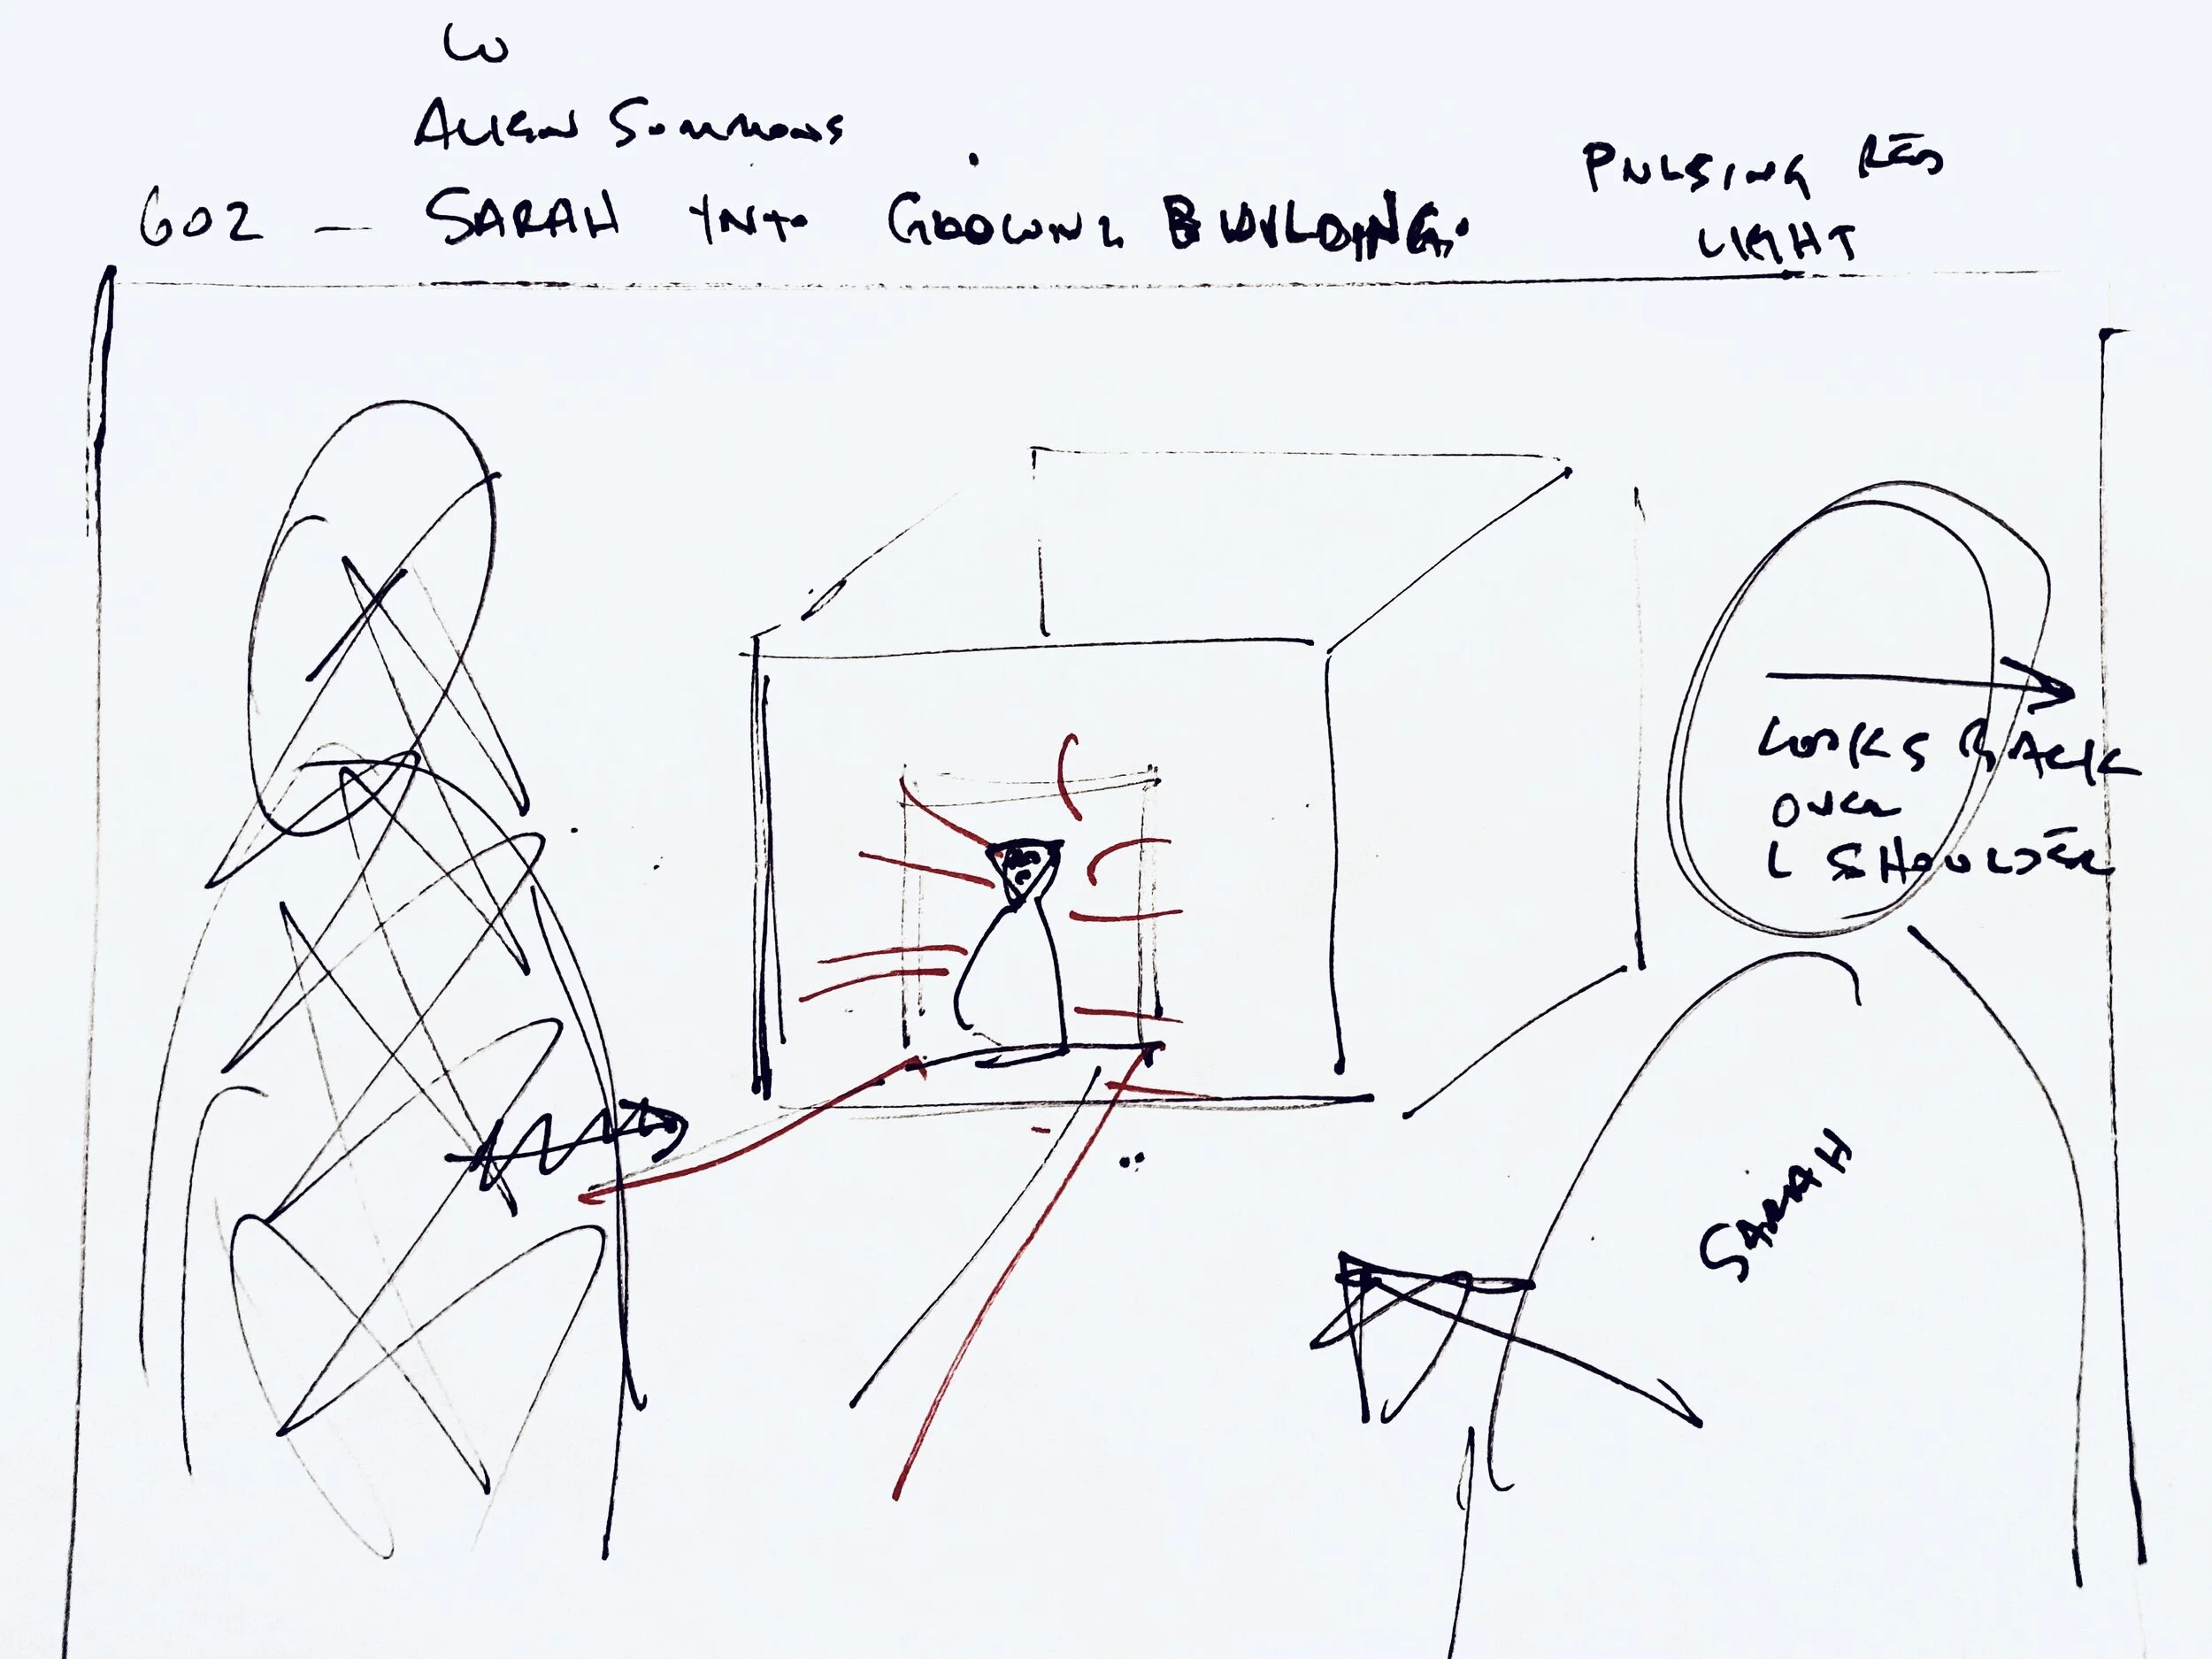 W
ALIEN SUMMONS
602 — SARAH INTO GLOWING BUILDING.
PULSING RED
LIGHT
LOOKS BACK
OVER
L SHOULDER
SARAH